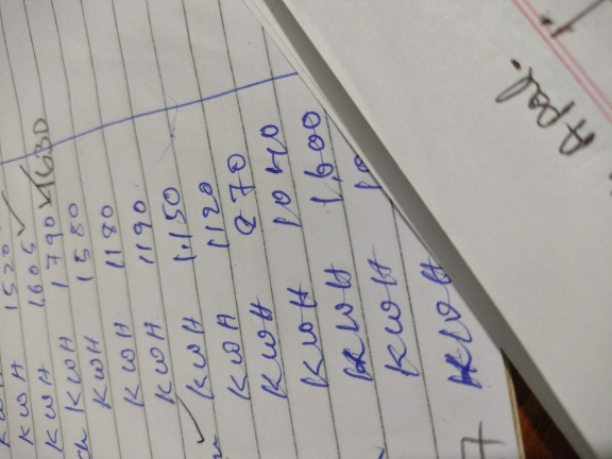 KWH 1520
KWH 1605
KWH 1790 1630
KWH 1580
KWH 1180
KWH 1190
KWH 1150
KWH 1120
KWH 870
KWH 1040
KWH 1,600
KWH 10
KWH